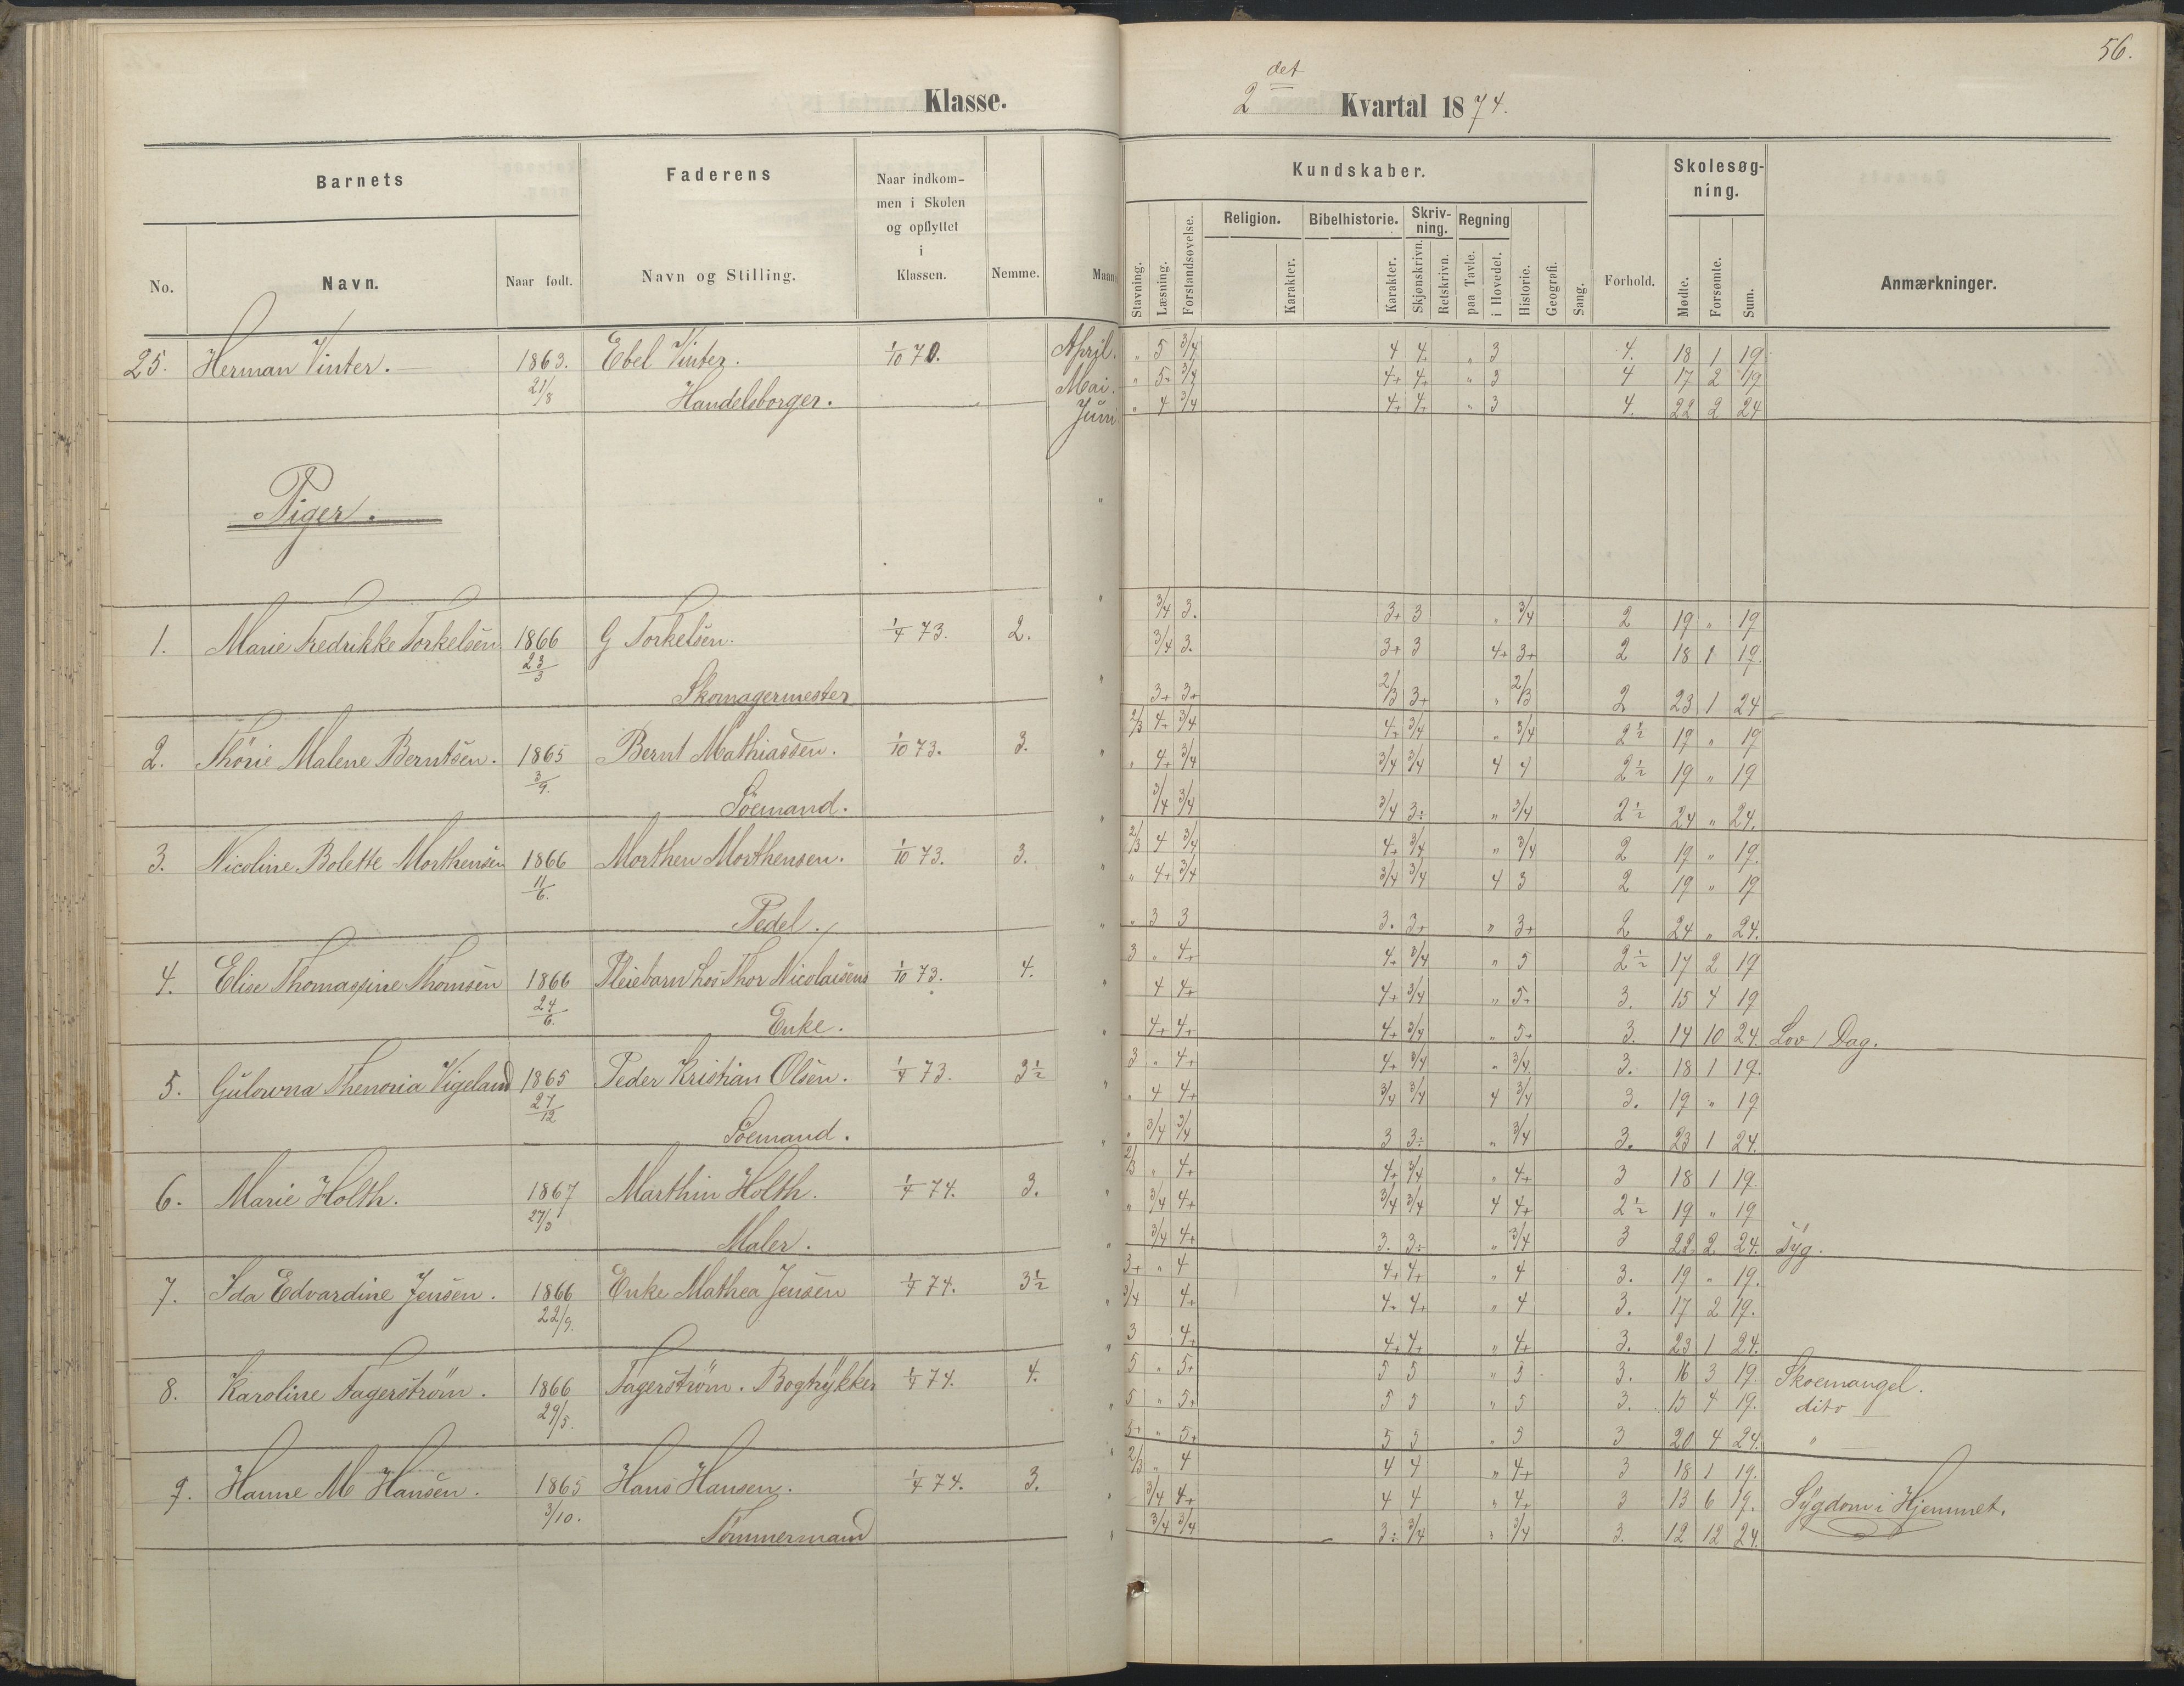 56.
Klasse.
2det Kvartal 1874.
Barnets
Faderens
Naar indkommen i Skolen og opflyttet i Klassen.
Nemme.
Maaned
Kundskaber.
Forhold.
Skolesøgning.
Anmærkninger.
No.
Navn.
Naar født.
Navn og Stilling.
Stavning.
Læsning.
Forstandsøvelse.
Religion.
Karakter.
Bibelhistorie.
Karakter.
Skrivning.
Skjønskrivn.
Retskrivn.
Regning
paa Tavle.
i Hovedet.
Historie.
Geografi.
Sang.
Mødte.
Forsømte.
Sum.
25. Herman Vinter. 1863. 21/8 Ebel Vinter. 1/10 70. April. " 5 3/4 4 4. " 3 4. 18 1 19
Handelsborger. Mai. " 5+ 3/4 4+ 4+ " 3 4 17 2 19
Juni " 4 3/4 4+ 4+ " 3 4. 22 2 24
Piger.
1. Marie Fredrikke Torkelsen 1866 23/3 G Torkelsen. 1/4 73. 2. 3/4 3. 3+ 3 " 3/4 2 19 " 19
3/4 3. 3+ 3 4+ 3+ 2 18 1 19.
Skomagermester 3+ 3+ 2/3 3+ " 2/3 2 23 1 24
2. Thörie Malene Berntsen. 1865 3/9. Bernt Mathiassen. 1/10 73. 3. 2/3 4+ 3/4 4+ 3/4 " 3/4 2½ 19 " 19
" 4+ 3/4 3/4 3/4 4 4 2½ 19 " 19
Söemand. 3/4 3/4 3/4 3÷ " 3/4 2½ 24 " 24.
3. Nicoline Bolette Morthensen 1866 11/6. Morthen Morthensen. 1/10 73. 3. 2/3 4 3/4 4+ 3/4 " 3/4 2 19 " 19.
" 4+ 3/4 3/4 3/4 4 3 2 19 " 19
Pedel. " 3 3 3. 3+ " 3+ 2 24 " 24.
4. Elise Thomassine Thomsen 1866 24/6. Pleiebarn hos Thor Nicolaisens 1/10 73. 4. 3 " 4+ 4+ 3/4 " 5 2½ 17 2 19
4 4+ 4+ 3/4 " 5+ 3. 15 4 19
Enke. 4+ 4+ 4+ 3/4 " 5+ 3. 14 10 24. Lov 1 Dag.
5. Gulowna Thenoria Vigeland 1865 27/12 Peder Kristian Olsen. 1/4 73. 3½ 3 " 4+ 4+ 3/4 " 3/4 3. 18 1 19.
" 4 4+ 3/4 3/4 4 3/4 3. 19 " 19
Söemand. " 3/4 3/4 3 3÷ " 3/4 3. 23 1 24.
6. Marie Holth. 1867 27/3 Marthin Holth. 1/4 74. 3. 2/3 " 4+ 4+ 3/4 " 4+ 3 18 1 19.
" 3/4 4+ 3/4 3/4 4 4+ 2½ 19 " 19
Maler. 3/4 4+ 3. 3÷ " 3/4 3 22 2 24. Syg.
7. Ida Edvardine Jensen. 1866 22/9. Enke Mathea Jensen 1/4 74. 3½ 3+ " 4 4+ 4+ " 4 3. 19 " 19.
3/4 4+ 4+ 4+ " 4 3. 17 2 19.
3 4+ 4+ 4+ " 4+ 3. 23 1 24.
8. Karoline Fagerström. 1866 29/5. Fagerström. Bogtrykker 1/4 74. 4. 5 " 5+ 5 5 " 5 3. 16 3 19. Skoemangel.
5 " 5+ 5 5 " 5 3. 15 4 19. dito
5+ " 5+ 5 5 " 5 3 20 4 24. "
9. Hanne M Hansen. 1865 3/10. Hans Hansen. 1/4 74. 3. 2/3 " 4 4 4 " 4+ 3 18 1 19.
3/4 4+ 4 4 " 4+ 3 13 6 19. Sygdom i Hjemmet.
Tömmermand 3/4 3/4 3÷ 3/4 " 3/4 3. 12 12 24.